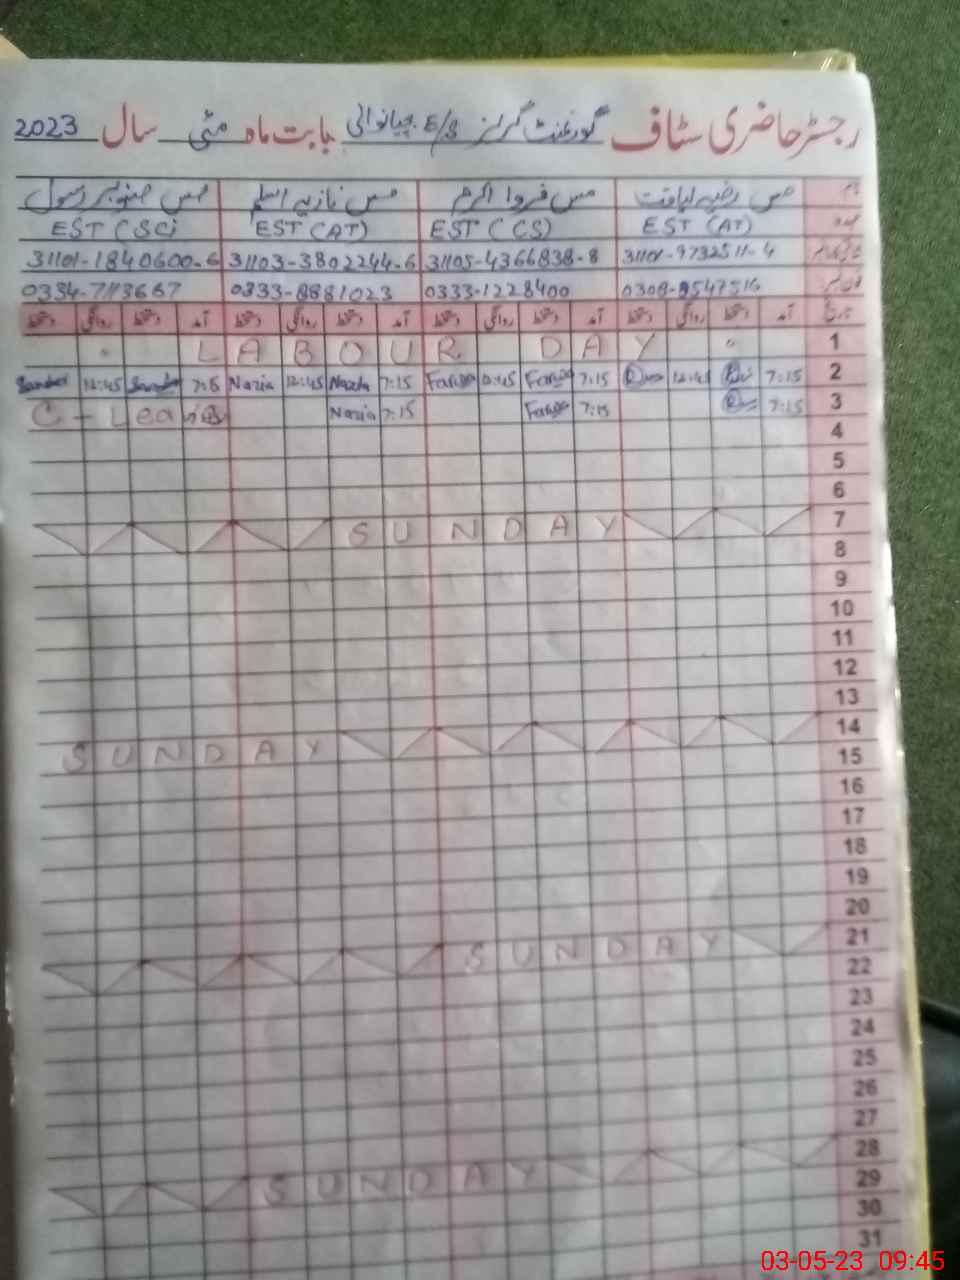 رجسٹر حاضری سٹاف گورنمنٹ گرلز E/S چیانوالی بابت ماہ مئی سال 2023
نام مس رضیہ لیاقت مس فروا اکرم مس نازیہ اسلم مس صنوبر رسول
عہدہ EST (AT) EST (CS) EST (AT) EST (SC)
31101-9732511-4 31105-4366838-8 31103-3802244-6 31101-1840600-6
فون نمبر 0333-1228400 0333-8881023
تاریخ آمد دستخط روانگی دستخط آمد دستخط روانگی دستخط آمد دستخط روانگی دستخط آمد دستخط روانگی دستخط
LABOUR DAY 1
12:45 Nazia 12:45 Nazia 7:15 7:15 12:45 7:15 2
C-Leave Nazia 7:15 7:15 7:15 3
4
5
6
SUNDAY 7
8
9
10
11
12
13
SUNDAY 14
15
16
17
18
19
20
SUNDAY 21
22
23
24
25
26
27
SUNDAY 28
29
30
31
03-05-23 09:45